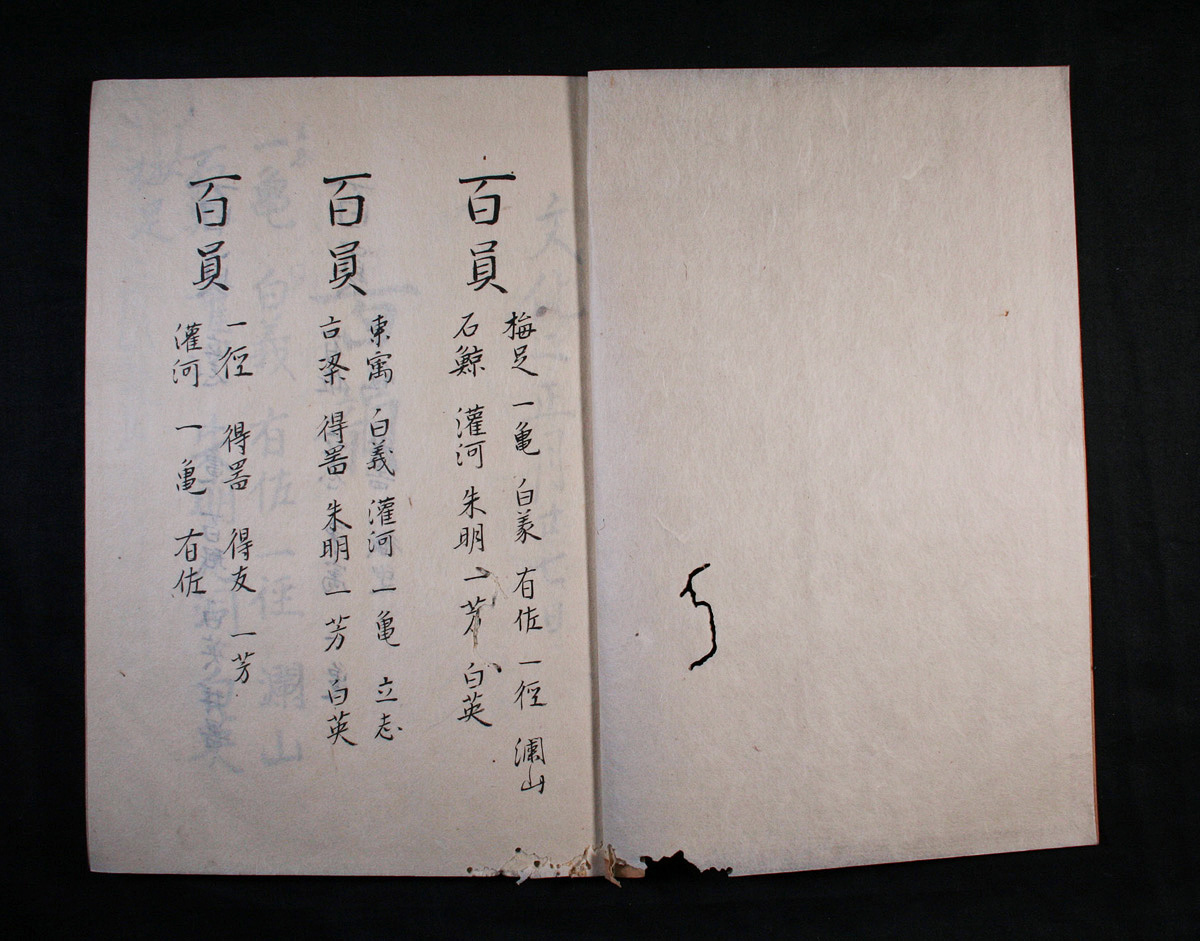 百員
梅足 一亀 白義 有佐 一径 瀾山
石鯨 灌河 朱明 一芳 白英
百員
東寓 白義 灌河 一亀 立志
古梁 得器 朱明 一芳 白英
百員
一径 得器 得友 一芳
灌河 一亀 有佐